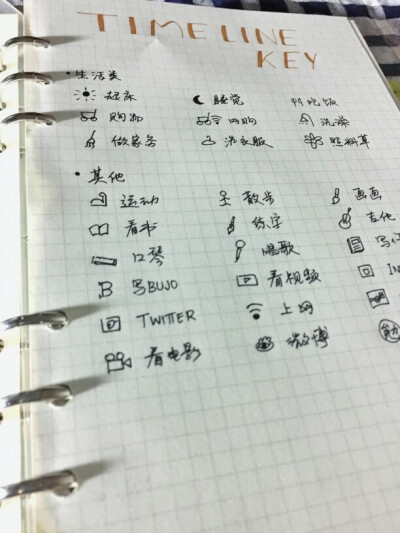 TIME LINE
KEY
·生活类
起床 睡觉 吃饭
购物 网购 洗澡
做家务 洗衣服 照料草
·其他
运动 散步 画画
看书 练字 吉他
口琴 唱歌 写
B 写BUJO 看视频 IN
TWITTER 上网
看电影 微博 勉